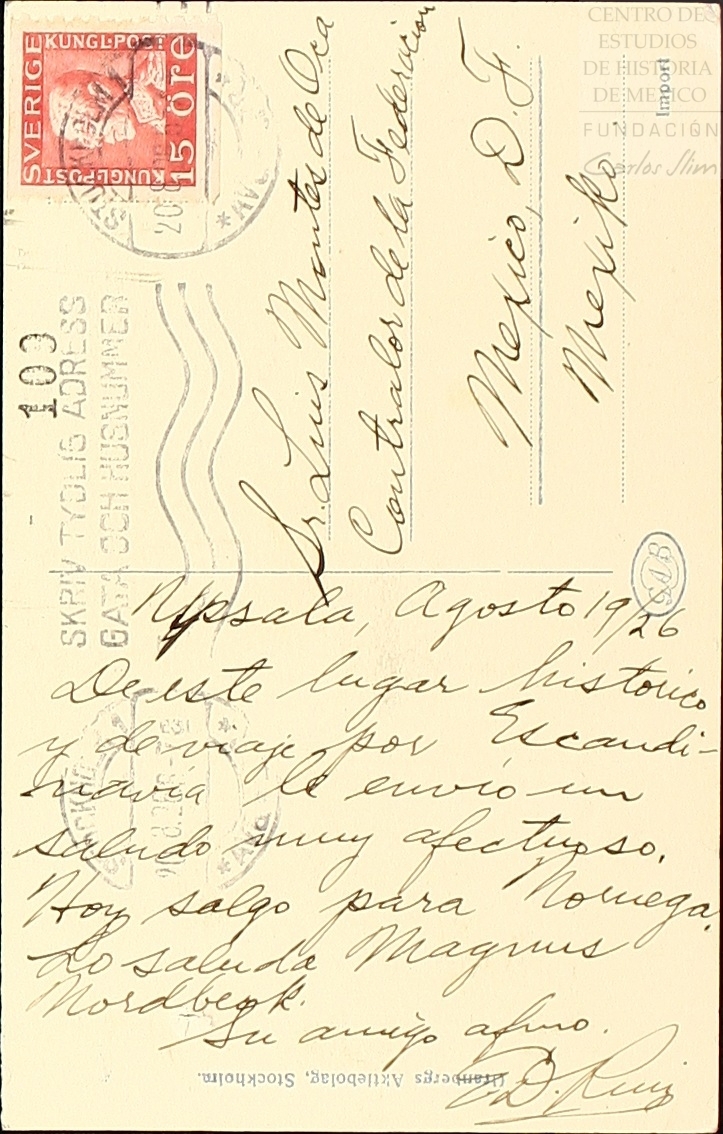 CENTRO DE
ESTUDIOS
DE HISTORIA
DE MEXICO
FUNDACIÓN
Carlos Slim
Import
SVERIGE
KUNGL·POST
15 ÖRE
KUNGLPOST
STOCKHOLM 1
100
SKRIV TYDLIG ADRESS
GATA OCH HUSNUMMER
Sr. Luis Montes de Oca
Contralor de la Federación
Mexico, D. F.
Mexiko.
Upsala, Agosto 19/26
De este lugar historico
y de viaje por Escandi-
navia le envio un
saludo muy afectuoso.
Hoy salgo para Noruega.
Lo saluda Magnus
Su amigo afmo.
D. Ruiz
Granbergs Aktiebolag, Stockholm.